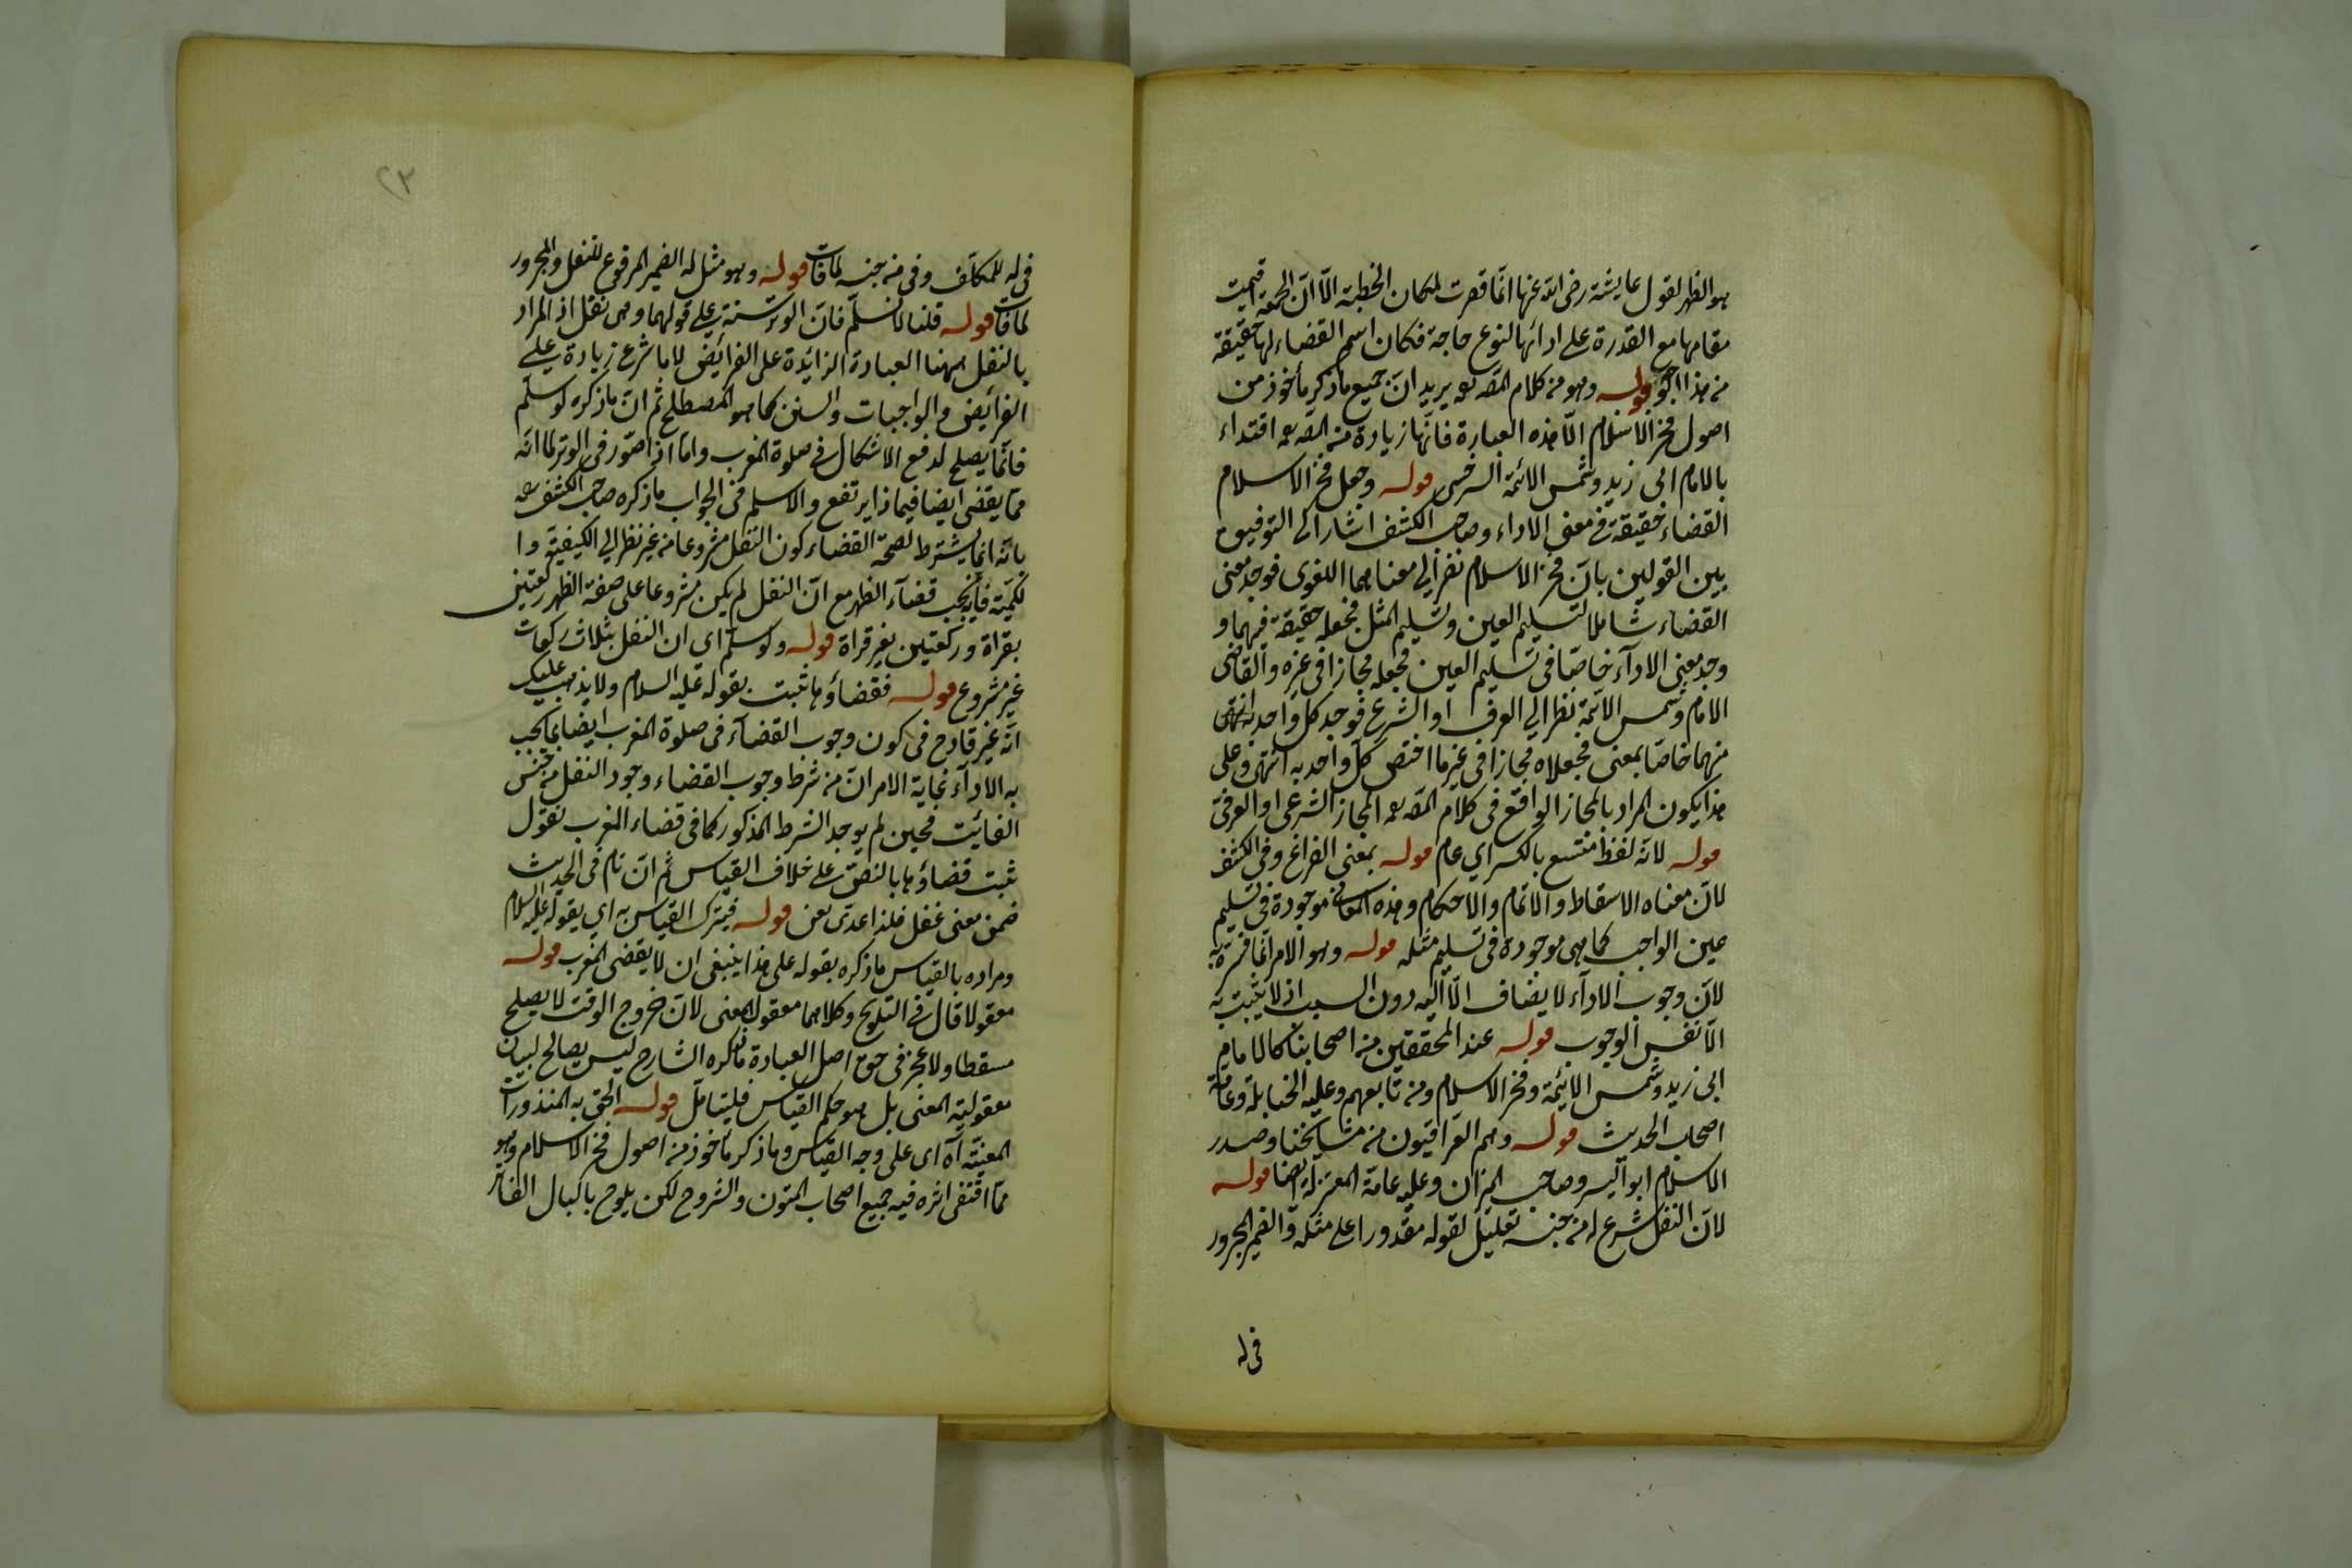 هو الظهر لقول عايشة رضى الله عنها انما قصرت لمكان الخطبة الا ان الجمعة اقيمت
مقامها مع القدرة على ادائها لنوع حاجة فكان اسم القضاء لها حقيقة
من هذا قوله وهو من كلام المص رحمه يريد ان جميع ما ذكر مأخوذ من
اصول فخر الاسلام الا هذه العبارة فانها زيادة من المص رحمه اقتداء
بالامام ابى زيد وشمس الائمة السرخسى قوله وجعل فخر الاسلام
القضاء حقيقة فى معنى الاداء وصاحب الكشف اشار الى التوفيق
بين القولين بان فخر الاسلام نظر الى معناهما اللغوى فوجد معنى
القضاء شاملا لتسليم العين وتسليم المثل فجعله حقيقة فيهما و
وجد معنى الاداء خاصا فى تسليم العين فجعله مجازا فى غيره والقاضى
الامام وشمس الائمة نظرا الى العرف او الشرع فوجد كل واحد
منهما خاصا بمعنى فجعلاه مجازا فى غير ما اختص كل واحد به انتهى وعلى
هذا يكون المراد بالمجاز الواقع فى كلام المص رحمه المجاز الشرعى او العرفى
قوله لانه لفظ متسع بالكسر اي عام قوله بمعنى الفراغ وفى الكشف
لان معناه الاسقاط والاتمام والاحكام وهذه المعانى موجودة فى تسليم
عين الواجب كما هى موجودة فى تسليم مثله قوله وهو الامر انما فسره به
لان وجوب الاداء لا يضاف الا اليه دون السبب اذ لا يثبت به
الا نفس الوجوب قوله عند المحققين من اصحابنا كالامام
ابى زيد وشمس الائمة وفخر الاسلام ومن تابعهم وعليه الحنابلة وعامة
اصحاب الحديث قوله وهم العراقيون من مشايخنا وصدر
الاسلام ابو اليسر وصاحب الميزان وعليه عامة المعتزلة ايضا قوله
لان النفل شرع له من جنسه تعليل لقوله مقدورا على مثله والضمير المجرور
فى له
٢٣
فى له للمكلف وفى من جنسه لما فات قوله وهو مثل له الضمير المرفوع للنفل والمجرور
لما فات قوله قلنا لا نسلم فان الوتر سنة على قولهما وهى نفل اذ المراد
بالنفل ههنا العبادة الزائدة على الفرائض لا ما شرع زيادة على
الفرائض والواجبات والسنن كما هو المصطلح ثم ان ما ذكره لو سلم
فانما يصلح لدفع الاشكال فى صلوة المغرب واما اذا صور فى الوتر لما انه
مما يقضى ايضا فبماذا يرتفع والاسلم فى الجواب ما ذكره صاحب الكشف رحمه
بانه انما يشترط لصحة القضاء كون النفل مشروعا من غير نظر الى الكيفية وا
لكمية فانه يجب قضاء الظهر مع ان النفل لم يكن مشروعا على صفة الظهر ركعتين
بقراءة وركعتين بغير قراءة قوله ولو سلم اى ان النفل بثلاث ركعات
غير مشروع قوله فقضاؤها ثبت بقوله عليه السلام ولا يذهب عليك
انه غير قادح فى كون وجوب القضاء فى صلوة المغرب ايضا بما يجب
به الاداء غاية الامر ان من شرط وجوب القضاء وجود النفل من جنس
الفائت فحين لم يوجد الشرط المذكور كما فى قضاء المغرب نقول
ثبت قضاؤها بالنص على خلاف القياس ثم ان نام فى الحديث
ضمن معنى غفل فلذا عدى بعن قوله فيترك القياس به اي بقوله عليه السلام
ومراده بالقياس ما ذكره بقوله على هذا ينبغى ان لا يقضى المغرب قوله
معقولا قال فى التلويح وكلاهما معقول المعنى لان خروج الوقت لا يصلح
مسقطا ولا عجز فى حق اصل العبادة ما ذكره الشارح ليس يصالح لبيان
معقولية المعنى بل هو حكم القياس فليتأمل قوله الحق به المنذورات
المعينة آه اى على وجه القياس وما ذكر مأخوذ من اصول فخر الاسلام وهو
مما اقتفى اثره فيه جميع اصحاب المتون والشروح لكن يلوح بالبال الفاتر